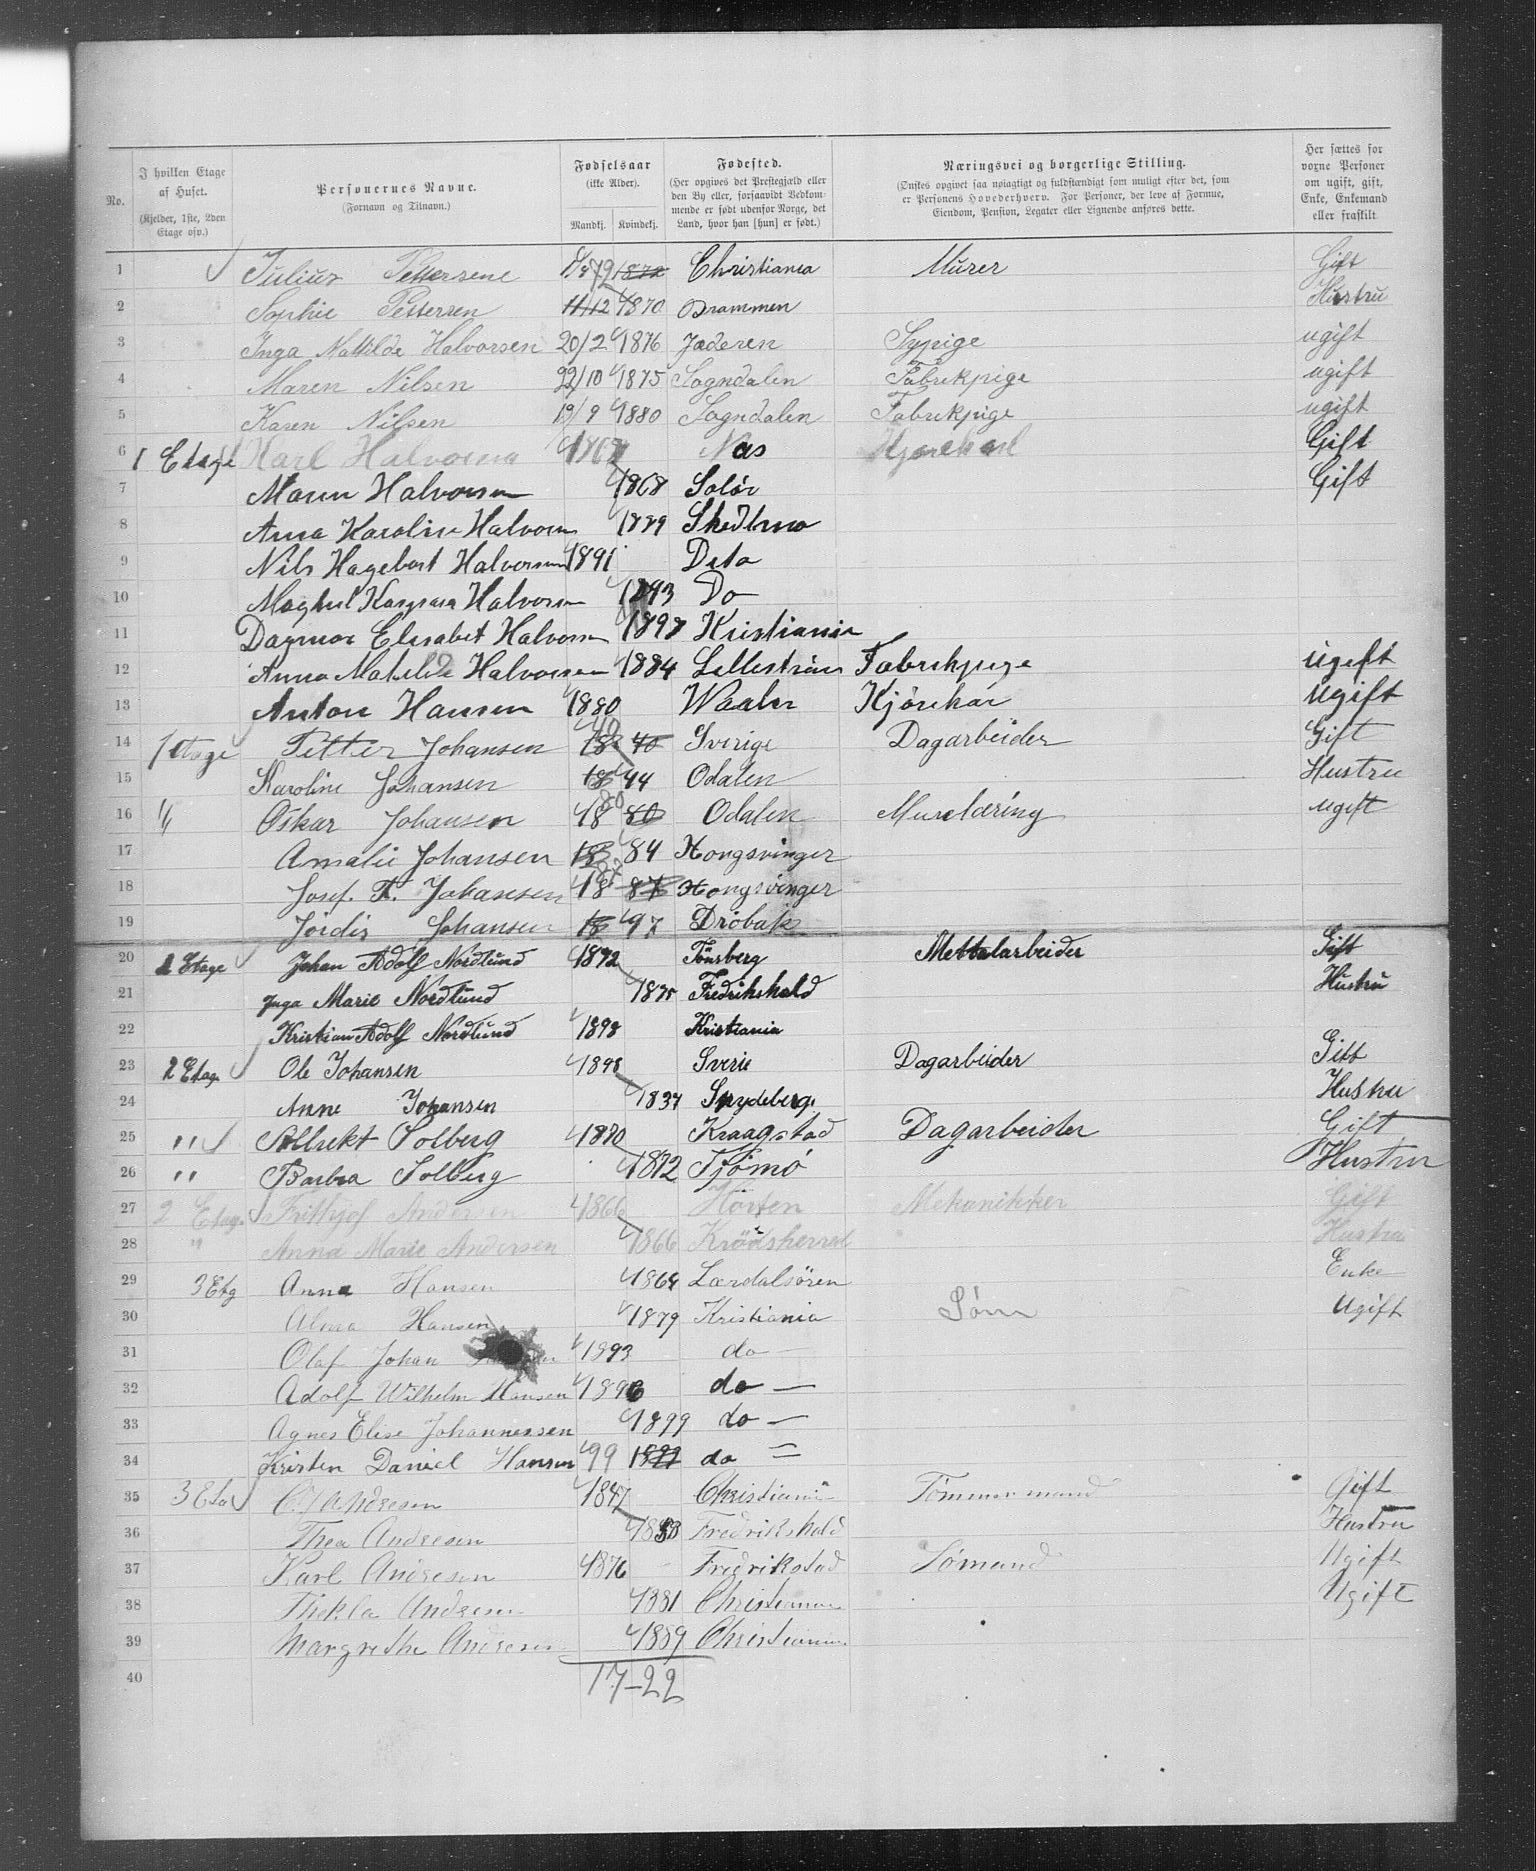 No. I hvilken Etage af Huset. (Kjelder, 1ste, 2den Etage osv.) Personernes Navne. (Fornavn og Tilnavn.) Fødselsaar (ikke Alder). Mandkj. Kvindekj. Fødested. (Her opgives det Prestegjæld eller den By eller, forsaavidt Vedkommende er født udenfor Norge, det Land, hvor han [hun] er født.) Næringsvei og borgerlige Stilling. (Ønskes opgivet saa nøiagtigt og fuldstændigt som muligt efter det, som er Personens Hovederhverv. For Personer, der leve af Formue, Eiendom, Pension, Legater eller Lignende anføres dette. Her sættes for vorne Personer om ugift, gift, Enke, Enkemand eller fraskilt
1 Julius Pettersene Christiania Murer Gift
2 Sophie Pettersen 11/12 1870 Drammen Hustru
3 Inga Matilde Halvorsen 20/2 1876 Jæderen Sypige ugift
4 Maren Nilsen 22/10 1875 Sogndalen Fabrikpige ugift
5 Karen Nilsen 19/9 1880 Sogndalen Fabrikpige ugift
6 1 Etage Karl Halvorsen Nas Gift
7 Maren Halvorsen 1868 Solør Gift
8 Anna Karoline Halvorsen 1889 Skedsmo
9 Nils Hagebart Halvorsen 1891 Deto
10 Halvorsen 1893 Do
11 Dagmar Elisabet Halvorsen 1897 Kristiania
12 Anna Matilde Halvorsen 1884 Lillestrøm Fabrikpige ugift
13 Anton Hansen 1880 Waaler Kjørekar ugift
14 1 Etage Petter Johansen 18 40 40 Sverige Dagarbeider Gift
15 Karoline Johansen 18 44 Odalen Hustru
16 " Oskar Johansen 18 80 80 Odalen Murelæring ugift
17 Amalie Johansen 18 84 Kongsvinger
18 Josef. F. Johansen 18 87 87 Kongsvinger
19 Jordis Johansen 18 97 Drøbak
20 1 Etage Johan Adolf Nordlund 1872 Tønsberg Mettalarbeider Gift
21 Inga Marie Nordlund 1875 Fredrikshald Hustru
22 Kristian Adolf Nordlund 1898 Kristiania
23 2 Etag. Ole Johansen Sverie Dagarbeider Gift
24 Anne Johansen 1837 Spydeberg. Hustru
25 " Albrekt Solberg 1870 Kraagstad Dagarbeider Gift
26 " Barbra Solberg 1872 Tjømø Hustru
27 2 Etage Frithjof Andersen 1866 Horten Mekanikker Gift
28 " Anna Marie Andersen 1866 Krødsherred Hustru
29 3 Etg Anna Hansen 1864 Lærdalsøren Enke
30 Alma Hansen 1879 Kristiania Søm Ugift
31 Olaf Johan 1893 do —
32 Adolf Wilhelm Hansen 1896 do —
33 Agnes Elise Johannessen 1899 do —
34 Kristen Daniel Hansen 99 do —
35 3 Eta C. J. Andresen 1847 Christiania Tømmermand Gift
36 Thea Andresen Fredrikshald Hustru
37 Karl Andresen 1876 Fredrikstad Sømand Ugift
38 Thekla Andresen 1881 Christiania Ugift
39 Margrethe Andresen 1889 Christiania
40 17-22